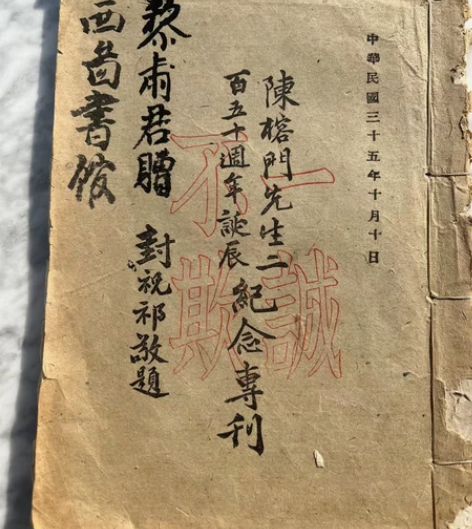 中華民國三十五年十月十日
一誠
不欺
陳榕門先生二
百五十週年誕辰
紀念專刊
封祝祁敬題
黎甫君贈
西圖書館